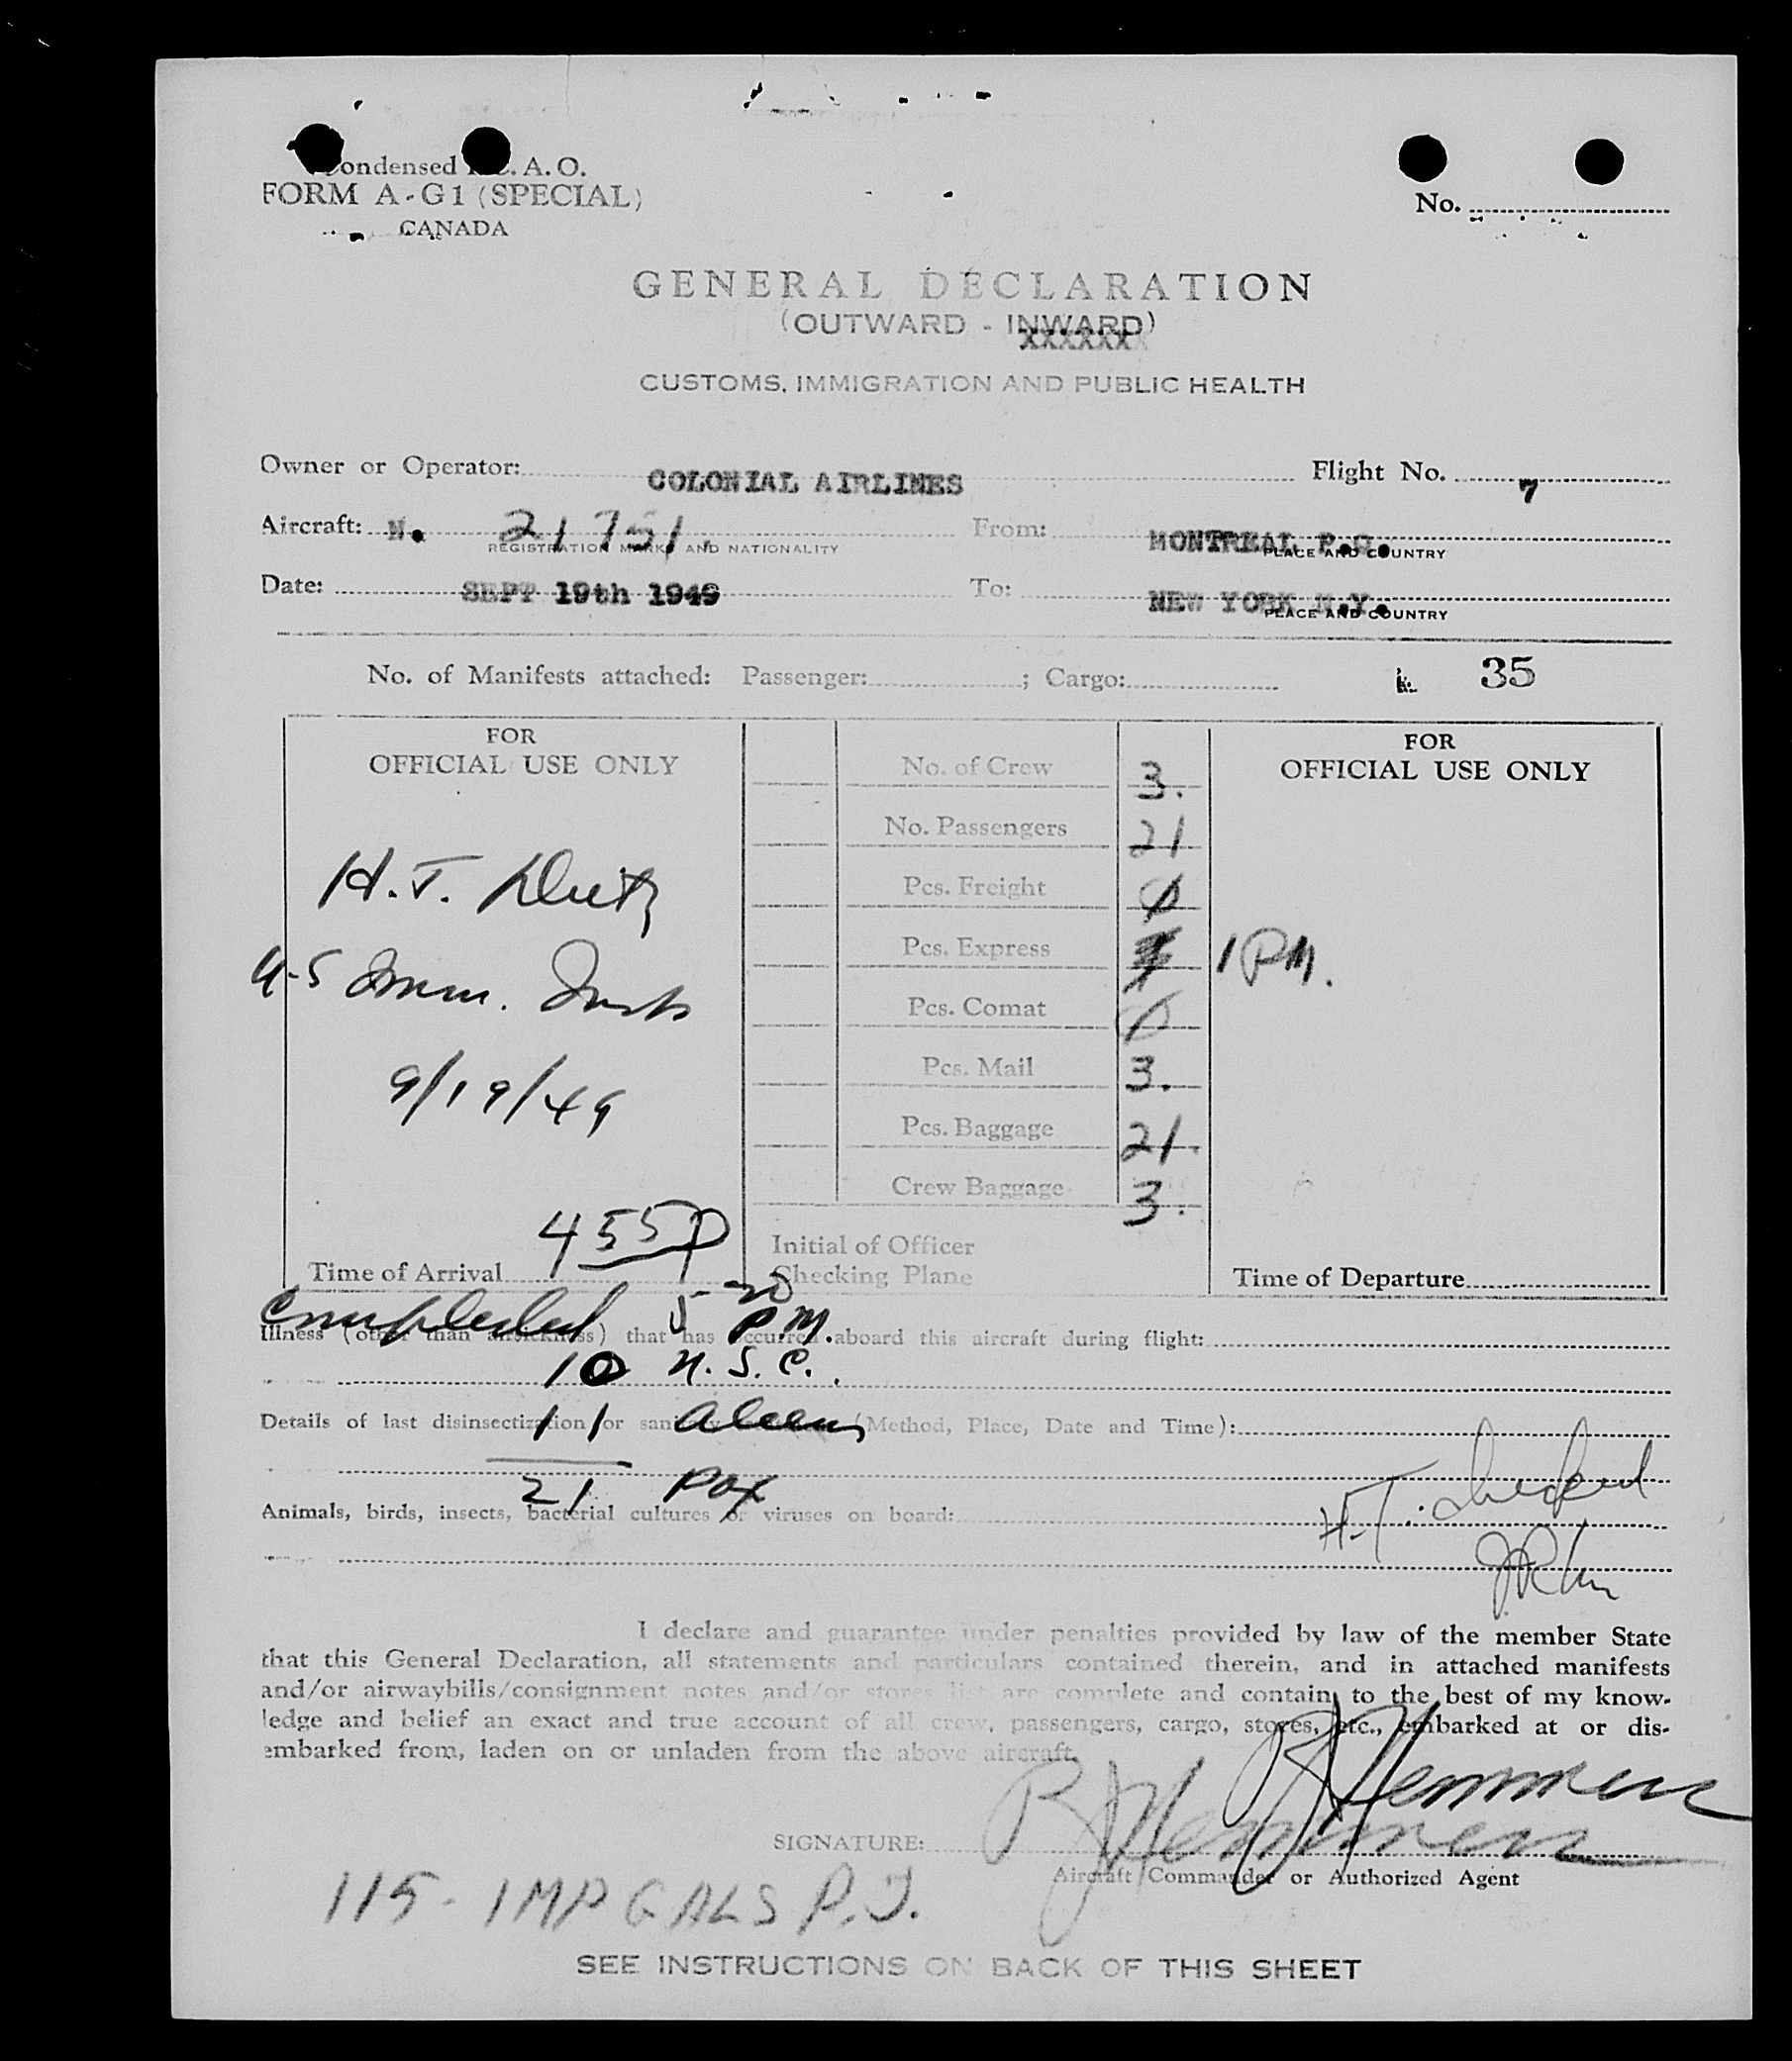 Condensed I.C.A.O.
FORM A-G1 (SPECIAL)
CANADA
No.
GENERAL DECLARATION
(OUTWARD - INWARD)
XXXXXX
CUSTOMS, IMMIGRATION AND PUBLIC HEALTH
Owner or Operator: COLONIAL AIRLINES Flight No. 7
Aircraft: N. 21751. From: MONTREAL P.Q.
REGISTRATION MARKS AND NATIONALITY PLACE AND COUNTRY
Date: SEPT 19th 1949 To: NEW YORK N.Y.
PLACE AND COUNTRY
No. of Manifests attached: Passenger: ; Cargo: 35
FOR
OFFICIAL USE ONLY
H.J.
U-S Imm. Insp
9/19/49
455P
Time of Arrival
No. of Crew 3.
No. Passengers 21
Pcs. Freight 0
Pcs. Express
Pcs. Comat 0
Pcs. Mail 3.
Pcs. Baggage 21.
Crew Baggage 3.
Initial of Officer
Checking Plane
FOR
OFFICIAL USE ONLY
1 PM.
Time of Departure
Completed 5-20 PM.
Illness (other than airsickness) that has occurred aboard this aircraft during flight:
10 U.S.C.
Details of last disinsectization or sanitary (Method, Place, Date and Time):
11 Aliens
21 Pax
Animals, birds, insects, bacterial cultures or viruses on board:
I declare and guarantee under penalties provided by law of the member State
that this General Declaration, all statements and particulars contained therein, and in attached manifests
and/or airwaybills/consignment notes and/or stores list are complete and contain to the best of my know-
ledge and belief an exact and true account of all crew, passengers, cargo, stores, etc., embarked at or dis-
embarked from, laden on or unladen from the above aircraft.
SIGNATURE:
Aircraft Commander or Authorized Agent
115 - IMP GALS P.J.
SEE INSTRUCTIONS ON BACK OF THIS SHEET